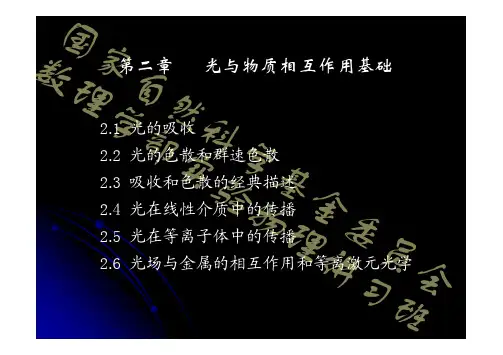 第二章 光与物质相互作用基础
2.1 光的吸收
2.2 光的色散和群速色散
2.3 吸收和色散的经典描述
2.4 光在线性介质中的传播
2.5 光在等离子体中的传播
2.6 光场与金属的相互作用和等离激元光学
国家自然科学基金委员会
数理学部实验物理讲习班